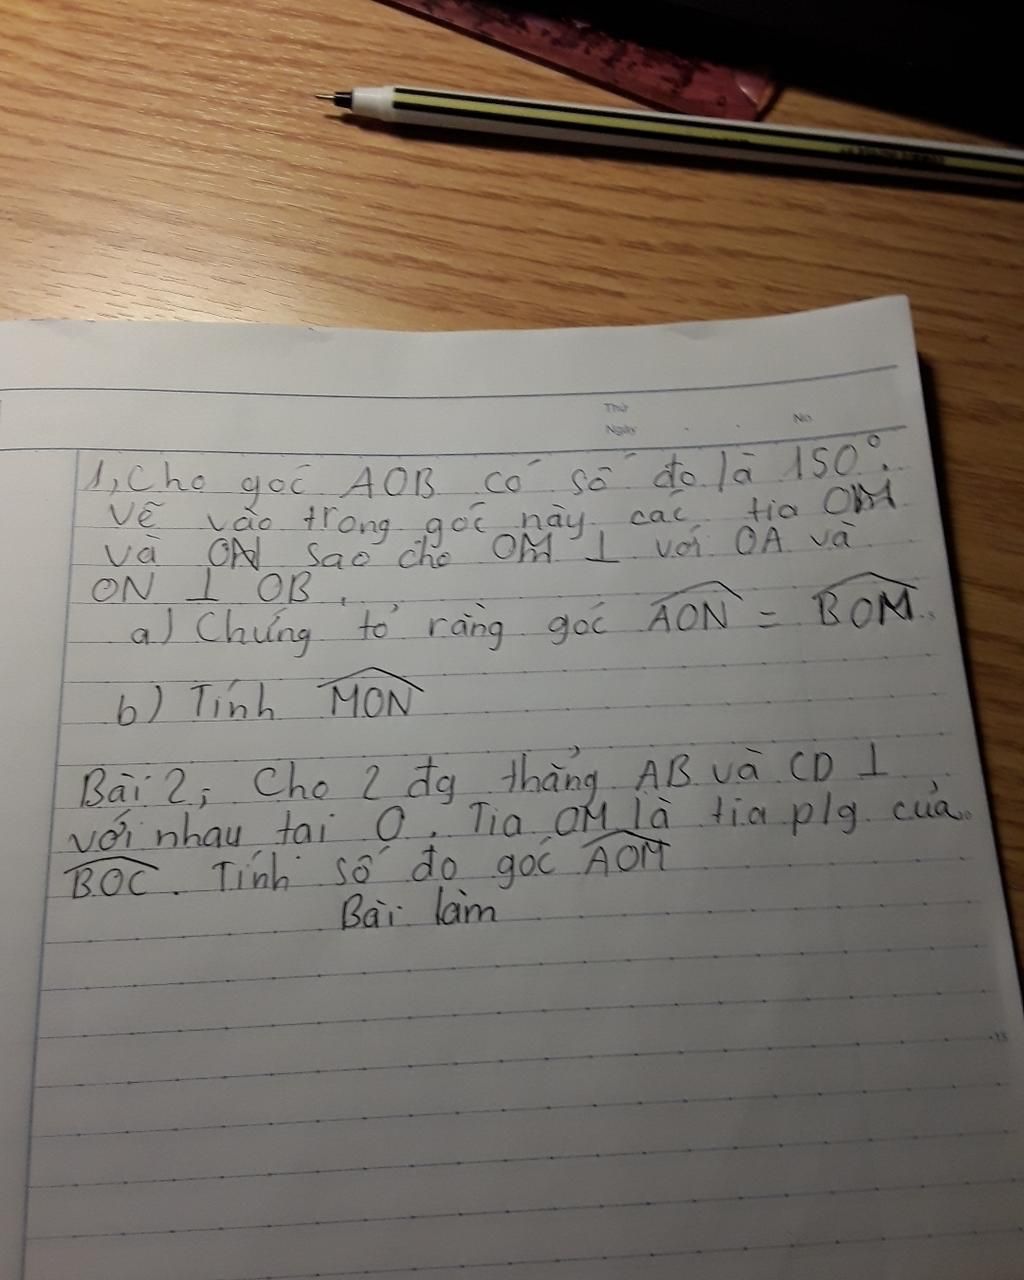 Thứ
Ngày . . No
1, Cho góc AOB có số đo là 150°.
Vẽ vào trong góc này các tia OM
và ON sao cho OM ⊥ với OA và
ON ⊥ OB.
a) Chứng tỏ rằng góc AON = BOM.
b) Tính MON
Bài 2; Cho 2 đg thẳng AB và CD ⊥
với nhau tại O. Tia OM là tia plg của
BOC. Tính số đo góc AOM
Bài làm